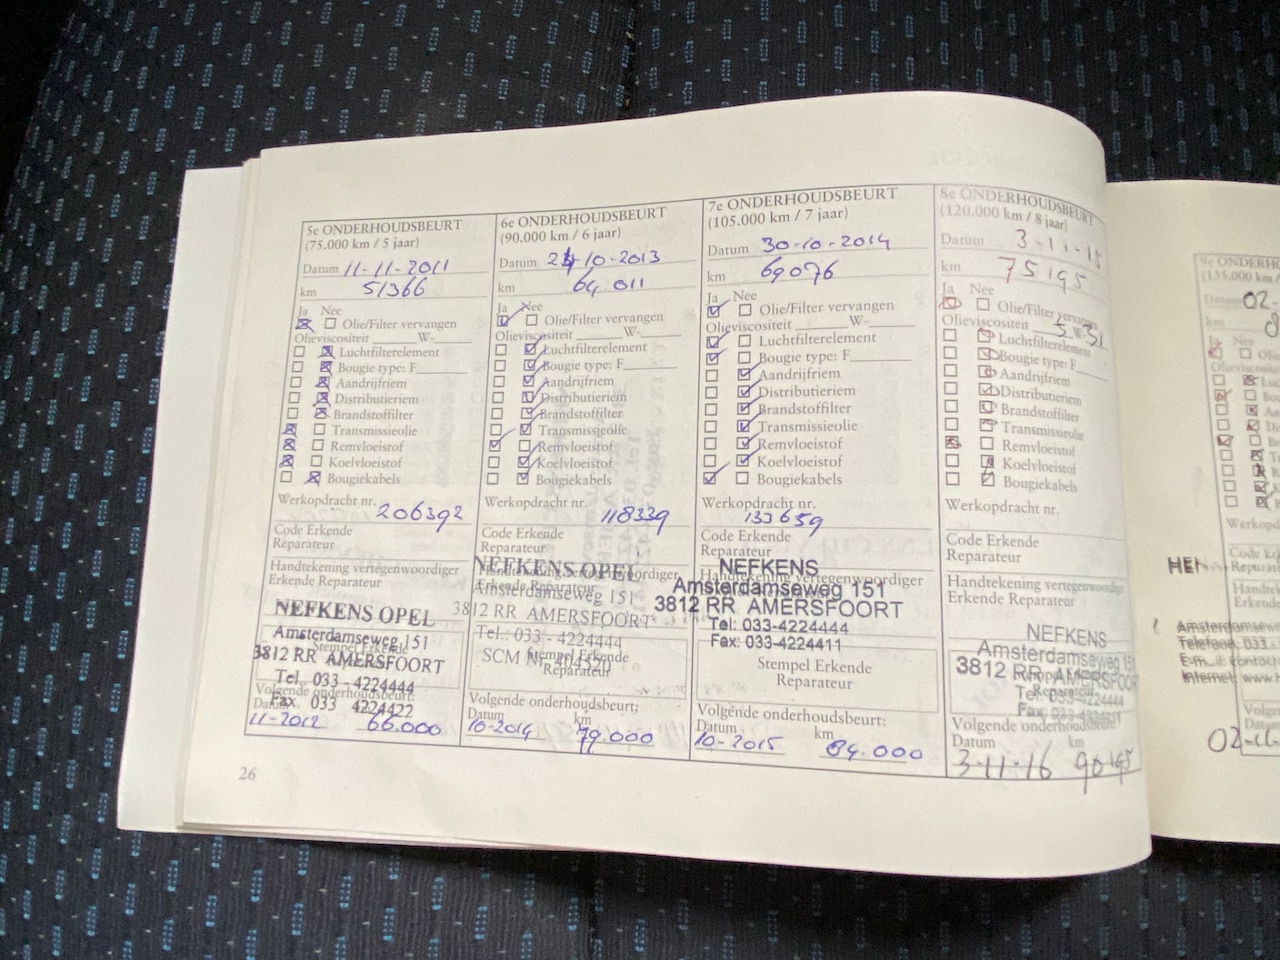 5e ONDERHOUDSBEURT
(75.000 km / 5 jaar)
Datum 11-11-2011
km 51366
Ja Nee
Olie/Filter vervangen
Olieviscositeit W-
Luchtfilterelement
Bougie type: F
Aandrijfriem
Distributieriem
Brandstoffilter
Transmissieolie
Remvloeistof
Koelvloeistof
Bougiekabels
Werkopdracht nr.
206392
Code Erkende
Reparateur
Handtekening vertegenwoordiger
Erkende Reparateur
NEFKENS OPEL
Amsterdamseweg 151
Stempel Erkende
3812 RR AMERSFOORT
Tel. 033 - 4224444
Volgende onderhoudsbeurt:
Fax. 033 4224422
Datum
11-2012 66.000
6e ONDERHOUDSBEURT
(90.000 km / 6 jaar)
Datum 24-10-2013
km 64.011
Ja Nee
Olie/Filter vervangen
Olieviscositeit W-
Luchtfilterelement
Bougie type: F
Aandrijfriem
Distributieriem
Brandstoffilter
Transmissieolie
Remvloeistof
Koelvloeistof
Bougiekabels
Werkopdracht nr.
118339
Code Erkende
Reparateur
NEFKENS OPEL
Handtekening vertegenwoordiger
Erkende Reparateur
Amsterdamseweg 151
3812 RR AMERSFOORT
Tel.: 033 - 4224444
Stempel Erkende
SCM Nr.
Reparateur
Volgende onderhoudsbeurt:
Datum km
10-2014 79.000
7e ONDERHOUDSBEURT
(105.000 km / 7 jaar)
Datum 30-10-2014
km 69076
Ja Nee
Olie/Filter vervangen
Olieviscositeit W-
Luchtfilterelement
Bougie type: F
Aandrijfriem
Distributieriem
Brandstoffilter
Transmissieolie
Remvloeistof
Koelvloeistof
Bougiekabels
Werkopdracht nr.
133659
Code Erkende
Reparateur
NEFKENS
Handtekening vertegenwoordiger
Amsterdamseweg 151
3812 RR AMERSFOORT
Tel: 033-4224444
Fax: 033-4224411
Stempel Erkende
Reparateur
Volgende onderhoudsbeurt:
Datum km
10-2015 84.000
8e ONDERHOUDSBEURT
(120.000 km / 8 jaar)
Datum 3-11-15
km 75195
Ja Nee
Olie/Filter vervangen
Olieviscositeit 5 W-
Luchtfilterelement
Bougie type: F
Aandrijfriem
Distributieriem
Brandstoffilter
Transmissieolie
Remvloeistof
Koelvloeistof
Bougiekabels
Werkopdracht nr.
Code Erkende
Reparateur
Handtekening vertegenwoordiger
Erkende Reparateur
NEFKENS
Amsterdamseweg 151
3812 RR AMERSFOORT
Tel: 033-4224444
Fax:
Volgende onderhoudsbeurt:
Datum km
3-11-16 90195
26
9e
(135.000 km
02-
km
Ja
Werkopd
Code
HEN
Telefoon: 033
Internet: www.
Volge
Datum